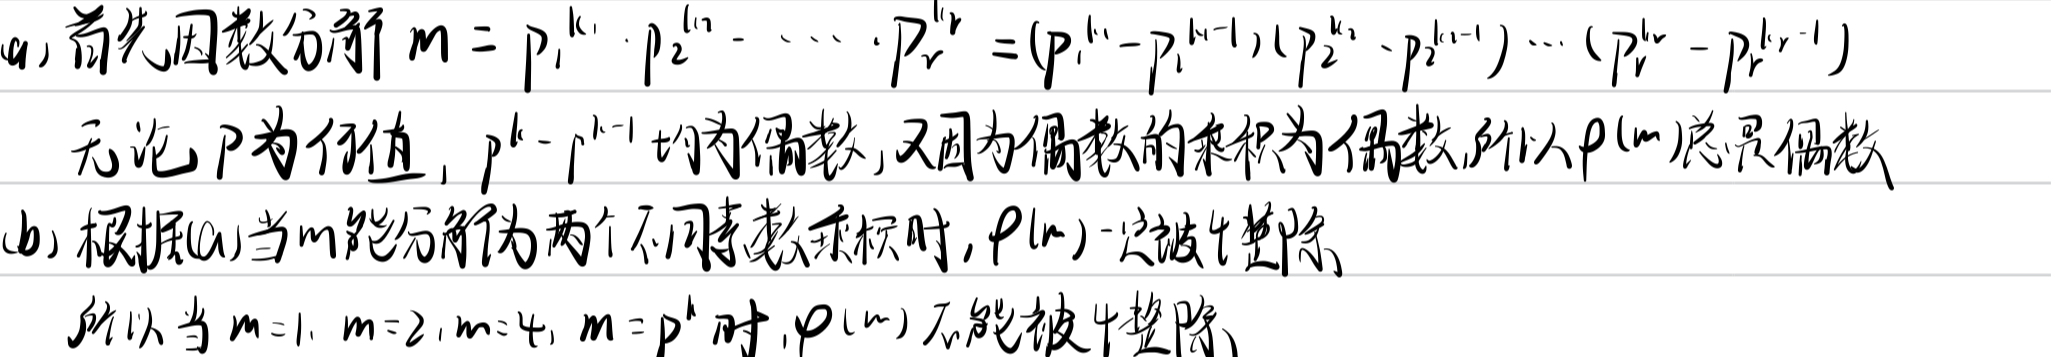 (a) 首先因数分解 m = p₁^k₁ · p₂^k₂ · ····· · pᵣ^kᵣ = (p₁^k₁ - p₁^(k₁-1)) (p₂^k₂ - p₂^(k₂-1)) ··· (pᵣ^kᵣ - pᵣ^(kᵣ-1))
无论p为何值, p^k - p^(k-1) 均为偶数,又因为偶数的乘积为偶数,所以φ(m)总是偶数
(b) 根据(a)当m能分解为两个不同素数乘积时,φ(m)一定被4整除、
所以当 m=1, m=2, m=4, m=p^k 时,φ(m) 不能被4整除、